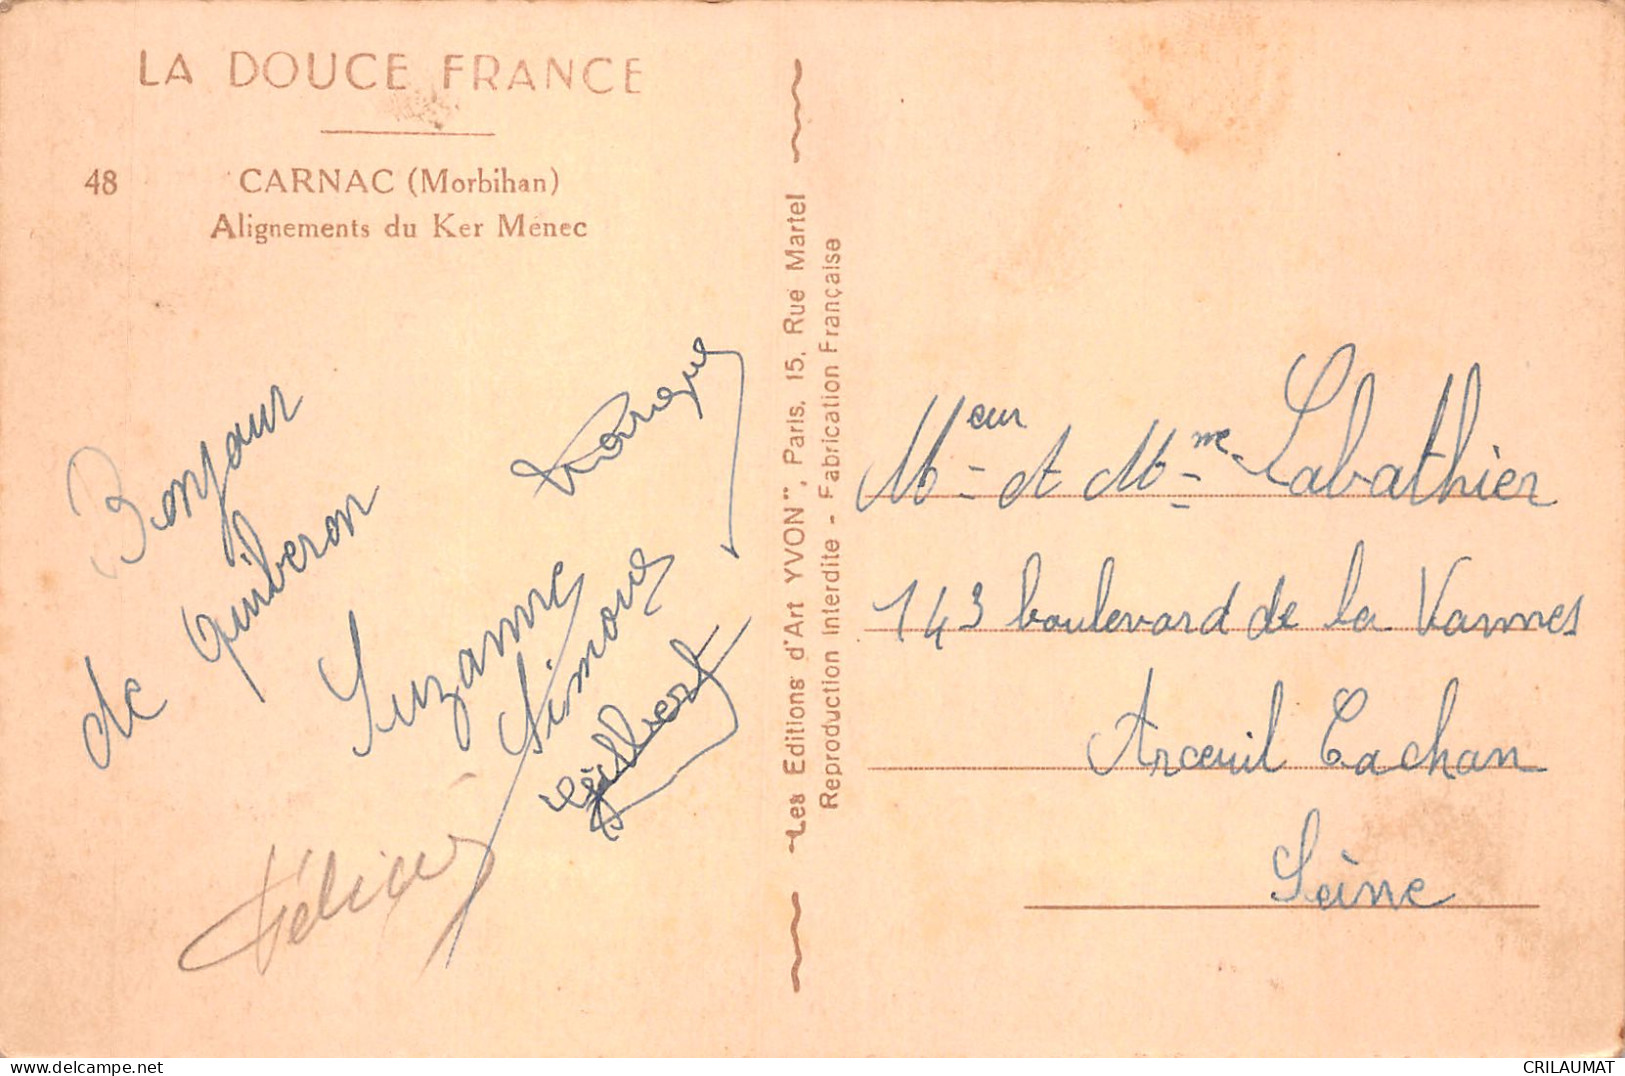 LA DOUCE FRANCE
48 CARNAC (Morbihan)
Alignements du Ker Ménec
Bonjour
de Quiberon
Suzanne
Simone
Gilbert
Félicien
"Les Editions d'Art YVON", Paris. 15, Rue Martel
Reproduction Interdite - Fabrication Française
Meur et Mme Labathier
143 boulevard de la Vannes
Arceuil Cachan
Seine
CRILAUMAT